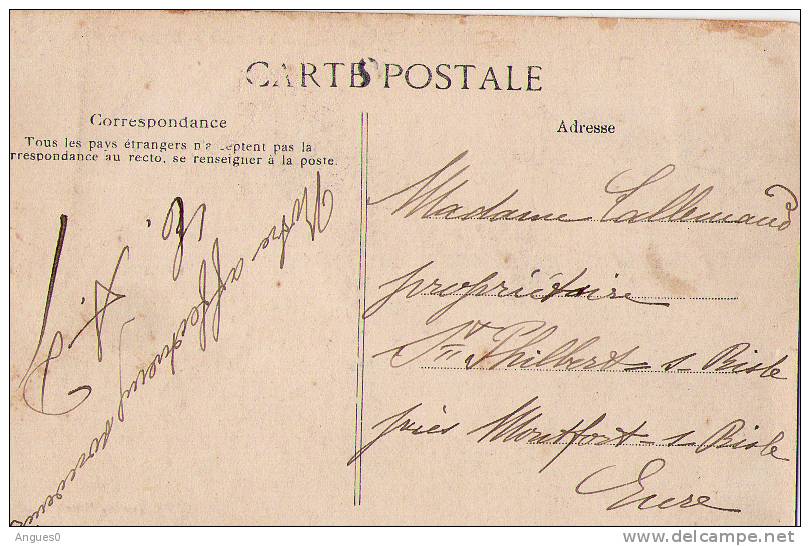 CARTE POSTALE
Correspondance
Tous les pays étrangers n'acceptent pas la
rrespondance au recto, se renseigner à la poste.
Votre affectueux
Adresse
Madame Lallemand
propriétaire
St Philbert-s-Risle
près Montfort-s-Risle
Eure
Angues0
delcampe.net